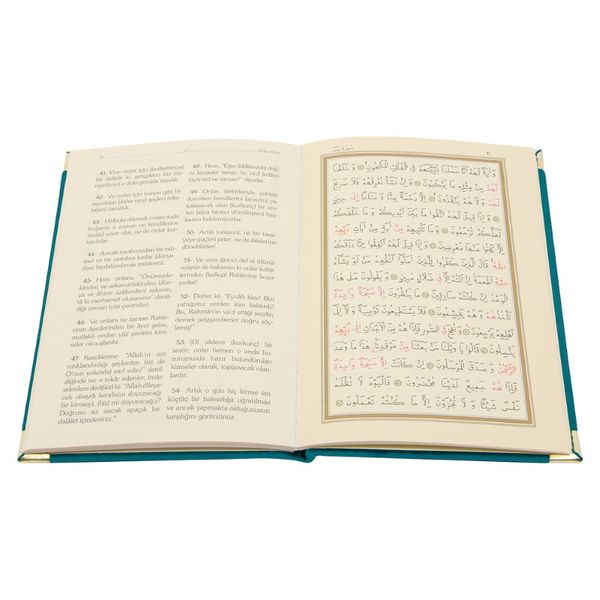 41- Yine onlar için (kudretimize)
bir delildir ki, gerçekten biz zür-
riyetlerini o dolu gemide taşıdık.
42- Ve onlar için bunun gibi bi-
necekleri (daha nice) şeyleri (vâsı-
taları) yarattık.
43- Hâlbuki dilemek olsak onları suda
boğarız; o zaman ne kendilerine
imdâd eden olur, ne de onlar kur-
tarılırlar.
44- Ancak tarafımızdan bir rah-
met ve bir zamana kadar (dünya-
dan) faydalandırma müstesnâ.
45- Hem onlara: "Önünüzde-
kinden ve arkanızdakinden (dün-
ya ve âhiret azâbından) sakının;
tâ ki merhamet olunasınız" denil-
diği zaman (yüz çevirirler).
46- Ve onlara ne zaman Rable-
rinin âyetlerinden bir âyet gelse,
mutlaka ondan yüz çevirici kim-
seler olmuşlardır.
47- Kendilerine: "Allah'ın sizi
rızıklandırdığı şeylerden (siz de
O'nun yolunda) sarf edin!" denil-
diğinde ise o inkâr edenler, îmân
edenlere dediler ki: "Allah dileye-
cek olsaydı kendisini doyuracağı
bir kimseyi, (biz) mi doyuracağız?
Doğrusu siz ancak apaçık bir
dalâlet içindesiniz."
48- Hem, "Eğer (iddiânızda) doğ-
ru kimseler iseniz, bu vaad (edilen
kıyâmet) ne zaman?" diyorlar.
49- Onlar, birbirleriyle çekişip
dururlarken kendilerini (ansızın) ya-
kalayacak olan (korkunç) bir ses-
ten (sûra birinci üfürülüşten) baş-
kasını beklemiyorlar.
50- Artık (onlar) ne bir tavsi-
yeye güçleri yeter, ne de âilelerine
dönebilirler!
51- Ve sûra (ikinci def'a) üfürül-
müştür de bakarsın ki onlar kabir-
lerinden (kalkıp) Rablerine koşu-
yorlar.
52- Derler ki: "Eyvâh bize! Bizi
yattığımız yerden kim kaldırdı?
Bu, Rahmân'ın va'd ettiği şeydir;
demek peygamberler doğru söyle-
mişler!"
53- (O) sâdece (korkunç) bir
sestir; onlar hemen o anda hu-
zurumuzda hazır bulundurulan
kimseler olarak, toplanacak olan-
lardır.
54- Artık o gün hiç kimse (en
küçük) bir haksızlığa uğratılmaz
ve ancak yapmakta olduğunuzun
karşılığını görürsünüz.
وَآيَةٌ لَهُمْ أَنَّا حَمَلْنَا ذُرِّيَّتَهُمْ فِي الْفُلْكِ الْمَشْحُونِ وَخَلَقْنَا
لَهُمْ مِنْ مِثْلِهِ مَا يَرْكَبُونَ وَإِنْ نَشَأْ نُغْرِقْهُمْ فَلَا صَرِيخَ
لَهُمْ وَلَا هُمْ يُنْقَذُونَ إِلَّا رَحْمَةً مِنَّا وَمَتَاعًا إِلَى
حِينٍ وَإِذَا قِيلَ لَهُمُ اتَّقُوا مَا بَيْنَ أَيْدِيكُمْ وَمَا خَلْفَكُمْ
لَعَلَّكُمْ تُرْحَمُونَ وَمَا تَأْتِيهِمْ مِنْ آيَةٍ مِنْ آيَاتِ رَبِّهِمْ
إِلَّا كَانُوا عَنْهَا مُعْرِضِينَ وَإِذَا قِيلَ لَهُمْ أَنْفِقُوا مِمَّا رَزَقَكُمُ
اللَّهُ قَالَ الَّذِينَ كَفَرُوا لِلَّذِينَ آمَنُوا أَنُطْعِمُ مَنْ لَوْ يَشَاءُ
اللَّهُ أَطْعَمَهُ إِنْ أَنْتُمْ إِلَّا فِي ضَلَالٍ مُبِينٍ وَيَقُولُونَ مَتَى هَذَا
الْوَعْدُ إِنْ كُنْتُمْ صَادِقِينَ مَا يَنْظُرُونَ إِلَّا صَيْحَةً وَاحِدَةً
تَأْخُذُهُمْ وَهُمْ يَخِصِّمُونَ فَلَا يَسْتَطِيعُونَ تَوْصِيَةً وَلَا إِلَى
أَهْلِهِمْ يَرْجِعُونَ وَنُفِخَ فِي الصُّورِ فَإِذَا هُمْ مِنَ الْأَجْدَاثِ إِلَى رَبِّهِمْ
يَنْسِلُونَ قَالُوا يَا وَيْلَنَا مَنْ بَعَثَنَا مِنْ مَرْقَدِنَا هَذَا مَا وَعَدَ
الرَّحْمَنُ وَصَدَقَ الْمُرْسَلُونَ إِنْ كَانَتْ إِلَّا صَيْحَةً وَاحِدَةً
فَإِذَا هُمْ جَمِيعٌ لَدَيْنَا مُحْضَرُونَ فَالْيَوْمَ لَا تُظْلَمُ
نَفْسٌ شَيْئًا وَلَا تُجْزَوْنَ إِلَّا مَا كُنْتُمْ تَعْمَلُونَ